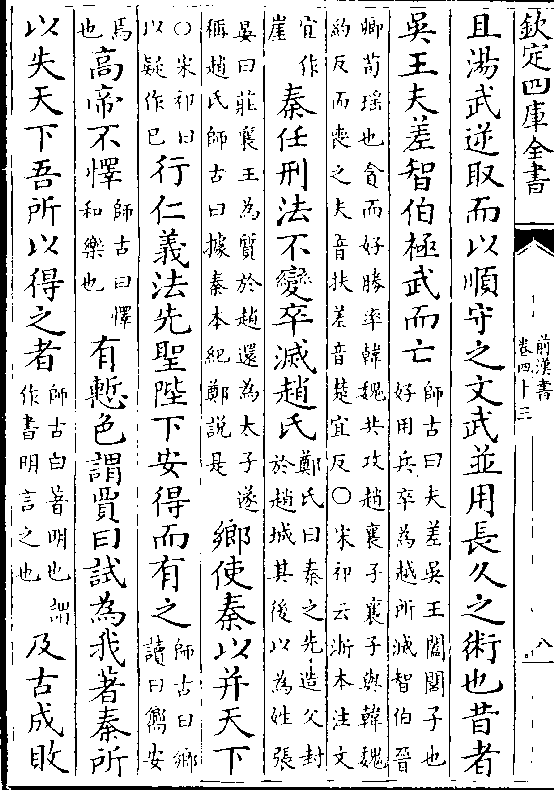 欽定四庫全書
前漢書
卷四十三
八
且湯武逆取而以順守之文武並用長久之術也昔者
吳王夫差智伯極武而亡師古曰夫差吳王闔閭子也好用兵卒為越所滅智伯晉
卿荀瑶也貪而好勝率韓魏共攻趙襄子襄子與韓魏約反而喪之夫音扶差音楚宜反○宋祁云浙本注文
宜作崖秦任刑法不變卒滅趙氏鄭氏曰秦之先造父封於趙城其後以為姓張
晏曰莊襄王為質於趙還為太子遂稱趙氏師古曰據秦本紀鄭説是鄉使秦以并天下
○宋祁曰以疑作已行仁義法先聖陛下安得而有之師古曰鄉讀曰嚮安
焉也高帝不懌師古曰懌和樂也有慙色謂賈曰試為我著秦所
以失天下吾所以得之者師古曰著明也謂作書明言之也及古成敗